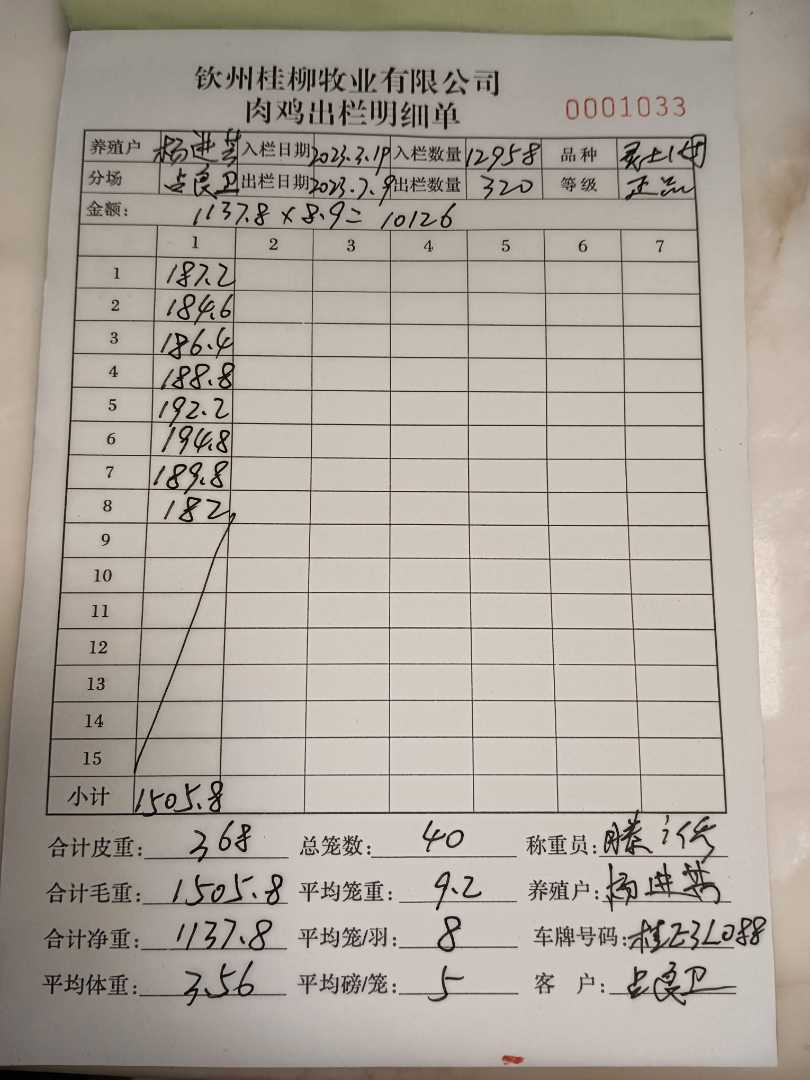 钦州桂柳牧业有限公司
肉鸡出栏明细单 0001033
养殖户 杨进 入栏日期 2023.3.19 入栏数量 12958 品种
分场 良卫 出栏日期 2023.7.9 出栏数量 320 等级 正品
金额: 1137.8×8.9= 10126
1 2 3 4 5 6 7
1 187.2
2 184.6
3 186.4
4 188.8
5 192.2
6 194.8
7 189.8
8 182
9
10
11
12
13
14
15
小计 1505.8
合计皮重: 368 总笼数: 40 称重员: 滕
合计毛重: 1505.8 平均笼重: 9.2 养殖户: 杨进
合计净重: 1137.8 平均笼/羽: 8 车牌号码: 桂E3L088
平均体重: 3.56 平均磅/笼: 5 客户: 良卫